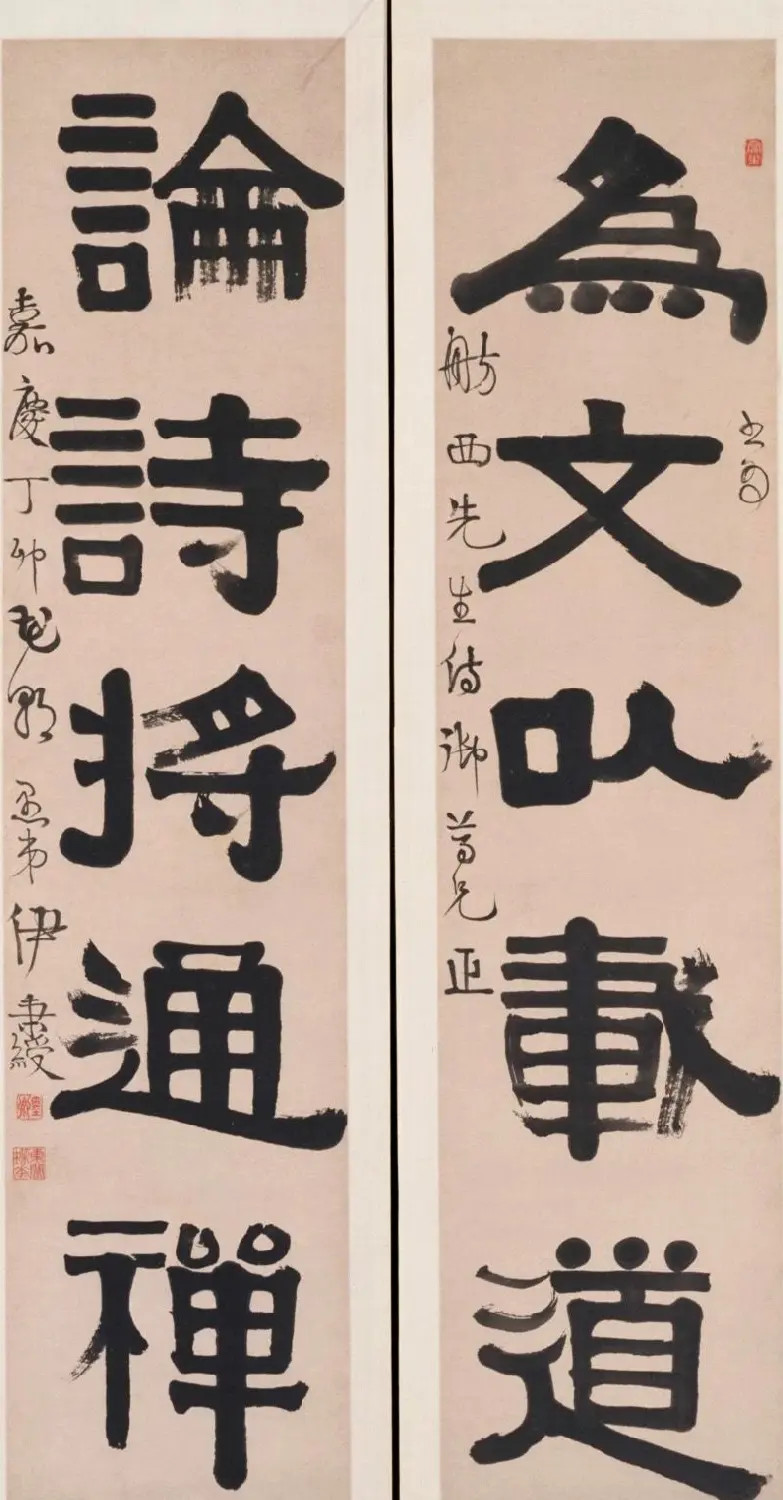 為文以載道
舫西先生侍御尊兄正
論詩將通禪
嘉慶丁卯花朝愚弟伊秉綬
墨卿